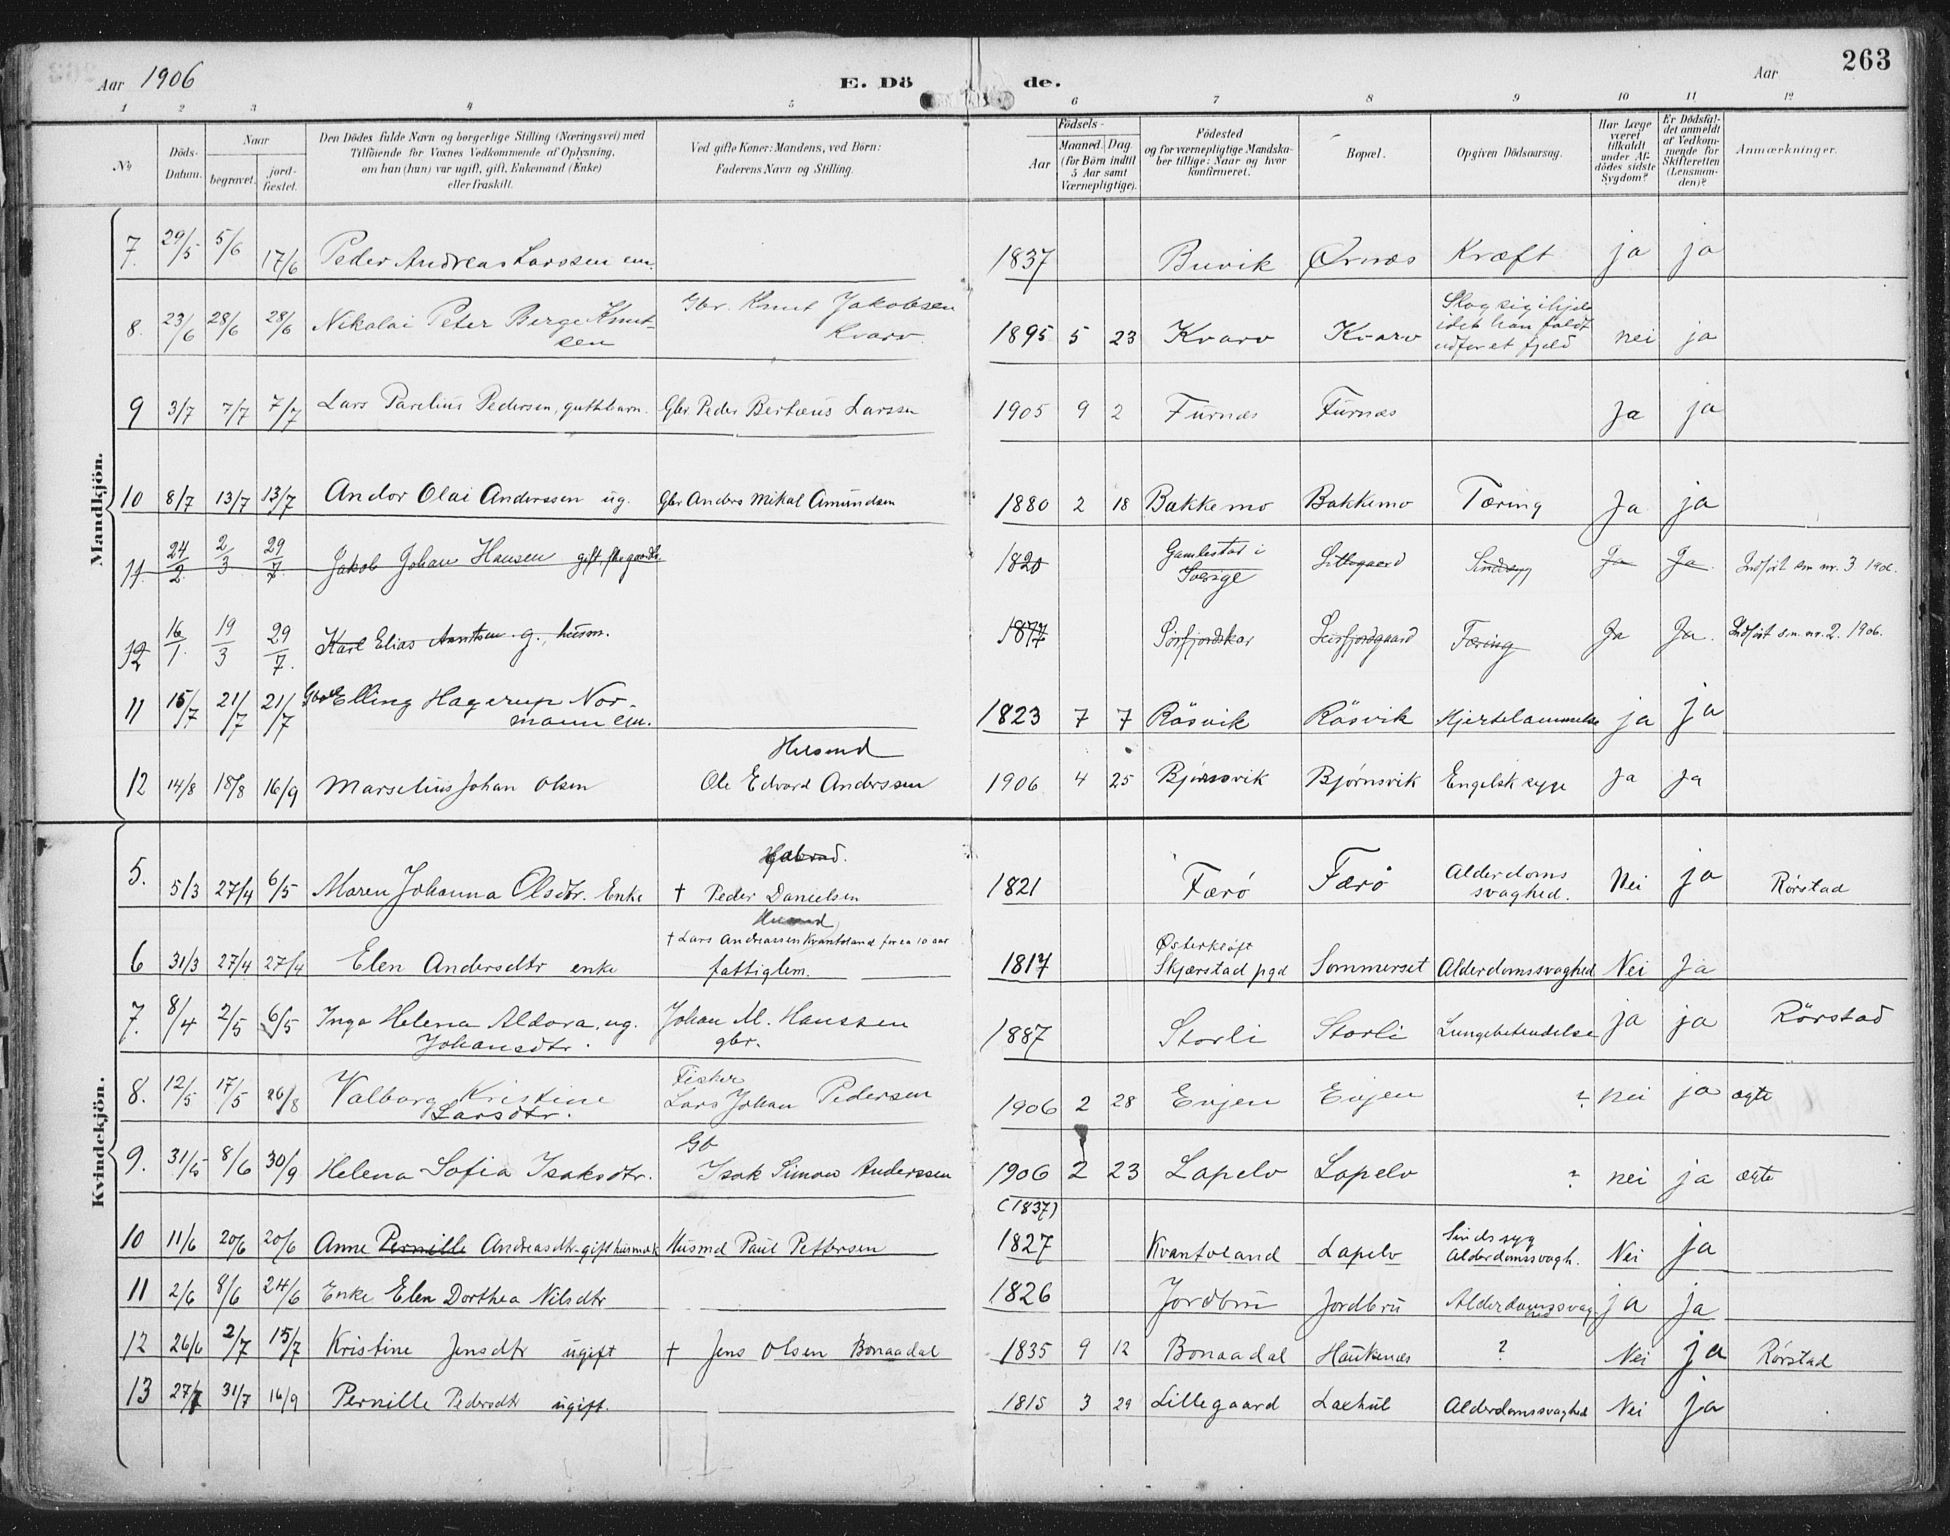 Aar 1906 E. Dö de. Aar 263
1 2 3 4 5 6 7 8 9 10 11 12
No Döds-Datum. Naar begravet. jord-fæstet. Den Dödes fulde Navn og borgerlige Stilling (Næringsvei) med Tilföiende for Voxnes Vedkommende af Oplysning, om han (hun) var ugift, gift, Enkemand (Enke) eller fraskilt. Ved gifte Koner: Mandens, ved Börn: Faderens Navn og Stilling. Födsels- Aar Maaned. Dag. (for Börn indtil 5 Aar samt Værnepligtige). Födested og for værnepligtige Mandska-ber tillige: Naar og hvor konfirmeret. Bopæl. Opgiven Dödsaarsag. Har Læge været tilkaldt under Af-dödes sidste Sygdom? Er Dödsfal-det anmeldt af Vedkom-mende for Skifteretten (Lensman-den)? Anmærkninger.
Mandkjön.
7. 29/5 5/6 17/6 Peder Andreas Larssen em. 1837 Buvik Ørnæs Kræft ja ja
8. 23/6 28/6 28/6 Nikolai Peter Berge Knut-
sen Gbr. Knut Jakobsen
Kvarv 1895 5 23 Kvarv Kvarv Slog sig ihjel
idet han faldt
udfor et fjeld nei ja
9 3/7 7/7 7/7 Lars Parelius Pedersen, guttbarn. Gbr Peder Berteus Larssen 1905 9 2 Furnæs Furnæs Ja ja
10 8/7 13/7 13/7 Andor Olai Anderssen ug. Gbr Anders Mikal Amundsen 1880 2 18 Bakkemo Bakkemo Tæring Ja ja
11. 24/2 2/3 29/7 Jakob Johan Hansen gift, 1820 Gamlestad i
Sverige Lillegaard Sindssyg Ja Ja. Indført sm nr. 3 1906.
12 16/1 19/3 29/7. Karl Elias Arntsen g., husm. 1877 Sørfjordskar Leirfjordgaard Tæring Ja Ja. Indført sm. nr. 2. 1906.
11 15/7 21/7 21/7 Elling Hagerup Nor-
mann em. 1823 7 7 Røsvik Røsvik Hjertelammelse ja ja
12 14/8 18/8 16/9 Marselius Johan Olsen Husmd
Ole Edvard Anderssen 1906 4 25 Bjørnsvik Bjørnsvik Engelsk syge Ja Ja
Kvindekjön.
5. 5/3 27/4 6/5 Maren Johanna Olsdtr. Enke † Peder Danielsen 1821 Færø Færø Alderdoms
svaghed. Nei ja Rørstad
6 31/3 27/4 27/4 Elen Andersdtr enke Husmd
† Lars Andreassen Kvantoland for ca 10 aar
fattiglem. 1817 Østerkløft
Skjærstad pgd Sommerset Alderdomssvaghed Nei Ja
7. 8/4 2/5 6/5 Inga Helena Aldora, ug.
Johansdtr. Johan M. Hanssen
gbr. 1887 Storli Storli Lungebetendelse ja ja Rørstad
8. 12/5 17/5 26/8 Valborg Kristine
Larsdtr. Fisker
Lars Johan Pedersen 1906 2 28 Evjen Evjen ? nei ja ægte
9. 31/5 8/6 30/9 Helena Sofia Isaksdtr. Gb
Isak Simon Anderssen 1906 2 23 Lapelv Lapelv ? nei ja ægte
10 11/6 20/6 20/6 Anne Pernille Andreasdtr gift husmdk Husmd Paul Pettersen (1837)
1827 Kvantoland Lapelv Sindssyg
Alderdomssvagh. Nei ja
11 2/6 8/6 24/6 Enke Elen Dorthea Nilsdtr 1826 Jordbru Jordbru Alderdomssvag-
hed ja ja
12 26/6 2/7 15/7 Kristine Jensdtr ugift † Jens Olsen Bonaadal 1835 9 12 Bonaadal Haukenæs ? Nei ja Rørstad
13 27/7 31/7 16/9 Pernille Pedersdtr ugift. 1815 3 29 Lillegaard Laxhul Alderdomssvaghed Nei ja